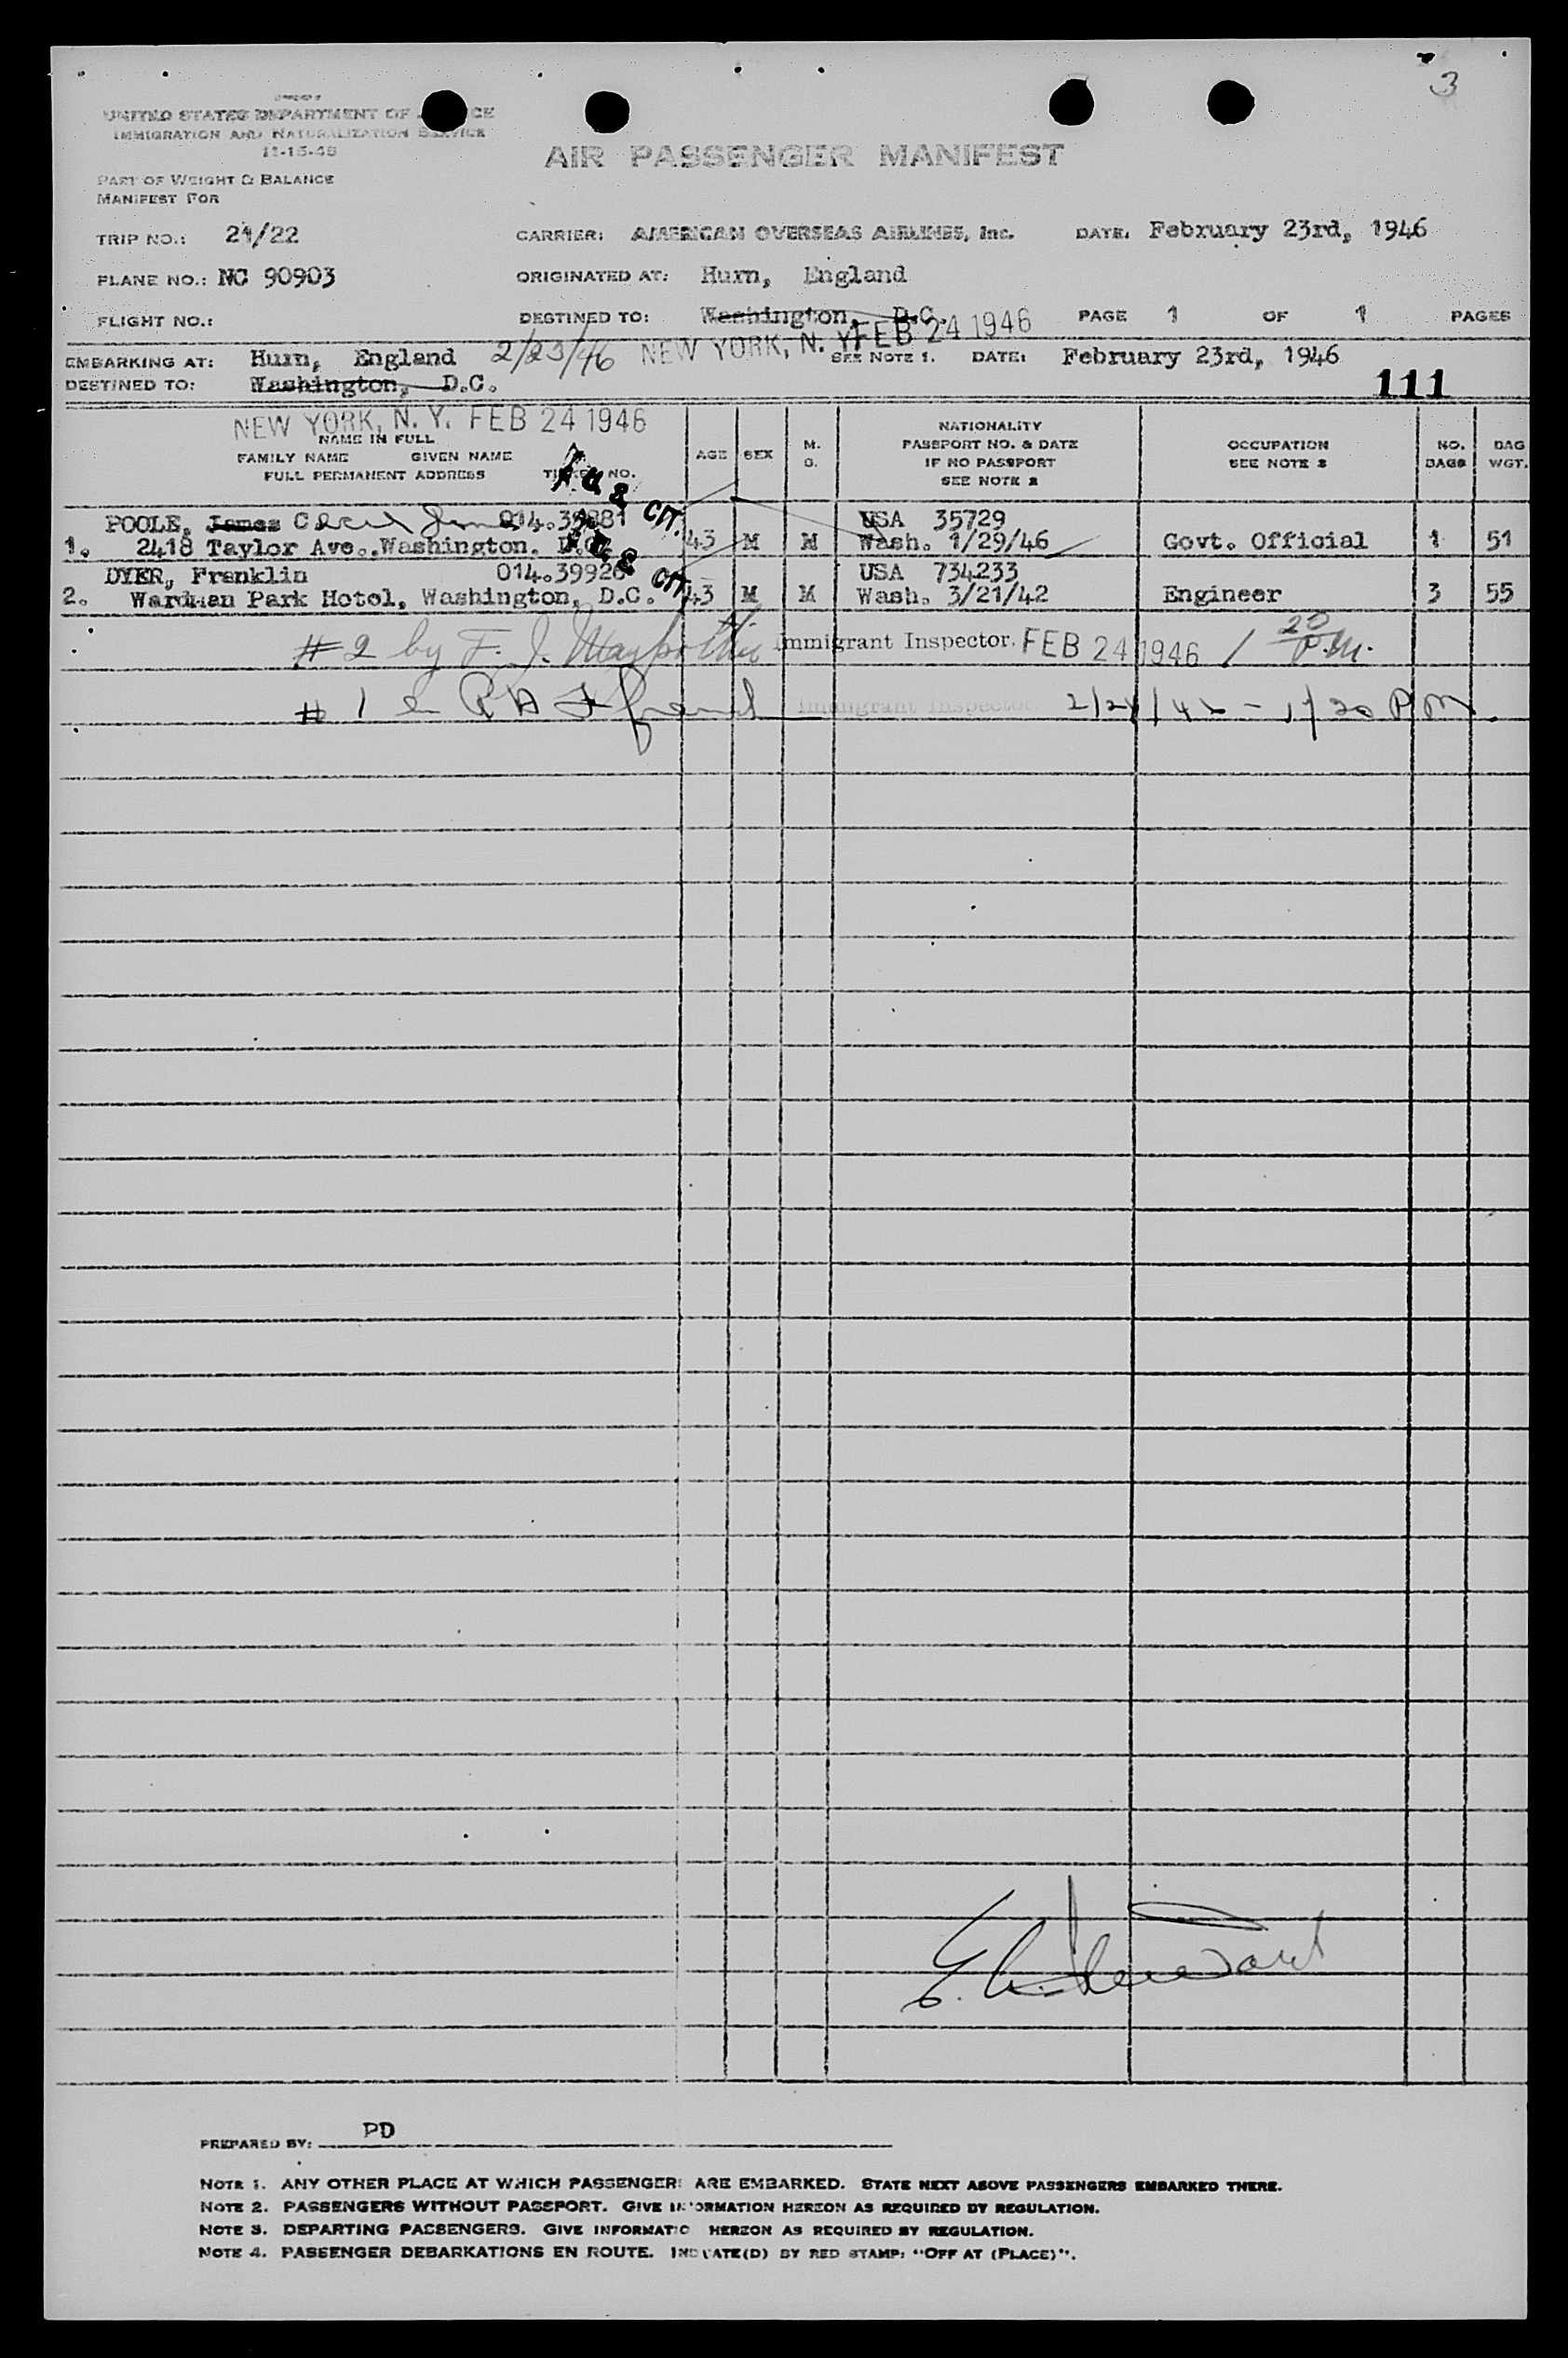 3
UNITED STATES DEPARTMENT OF
IMMIGRATION AND NATURALIZATION SERVICE
11-15-45
AIR PASSENGER MANIFEST
PART OF WEIGHT & BALANCE
MANIFEST FOR
TRIP NO.: 21/22 CARRIER: AMERICAN OVERSEAS AIRLINES, Inc. DATE: February 23rd, 1946
PLANE NO.: NC 90903 ORIGINATED AT: Hurn, England
FLIGHT NO.: DESTINED TO: Washington, D.C. PAGE 1 OF 1 PAGES
NEW YORK, N. Y. FEB 24 1946
EMBARKING AT: Hurn, England 2/23/46 SEE NOTE 1. DATE: February 23rd, 1946
DESTINED TO: Washington, D.C.
111
NEW YORK, N. Y. FEB 24 1946
NAME IN FULL
FAMILY NAME GIVEN NAME
FULL PERMANENT ADDRESS TICKET NO.
AGE SEX M. S. NATIONALITY
PASSPORT NO. & DATE
IF NO PASSPORT
SEE NOTE 2
OCCUPATION
SEE NOTE 3
NO. BAGS
BAG WGT.
POOLE, James Cecil James 014.39881 USA 35729
1. 2418 Taylor Ave., Washington, D.C. 43 M M Wash. 1/29/46 Govt. Official 1 51
CIT.
DYER, Franklin 014.39926 USA 734233
2. Wardman Park Hotel, Washington, D.C. 43 M M Wash. 3/21/42 Engineer 3 55
CIT.
#2 by F. J. Immigrant Inspector. FEB 24 1946 1 20 P.M.
#1 Immigrant Inspector 2/24/46 - 1/20 PM
PREPARED BY: PD
NOTE 1. ANY OTHER PLACE AT WHICH PASSENGERS ARE EMBARKED. STATE NEXT ABOVE PASSENGERS EMBARKED THERE.
NOTE 2. PASSENGERS WITHOUT PASSPORT. GIVE INFORMATION HEREON AS REQUIRED BY REGULATION.
NOTE 3. DEPARTING PASSENGERS. GIVE INFORMATIO HEREON AS REQUIRED BY REGULATION.
NOTE 4. PASSENGER DEBARKATIONS EN ROUTE. INDICATE(D) BY RED STAMP: "OFF AT (PLACE)".